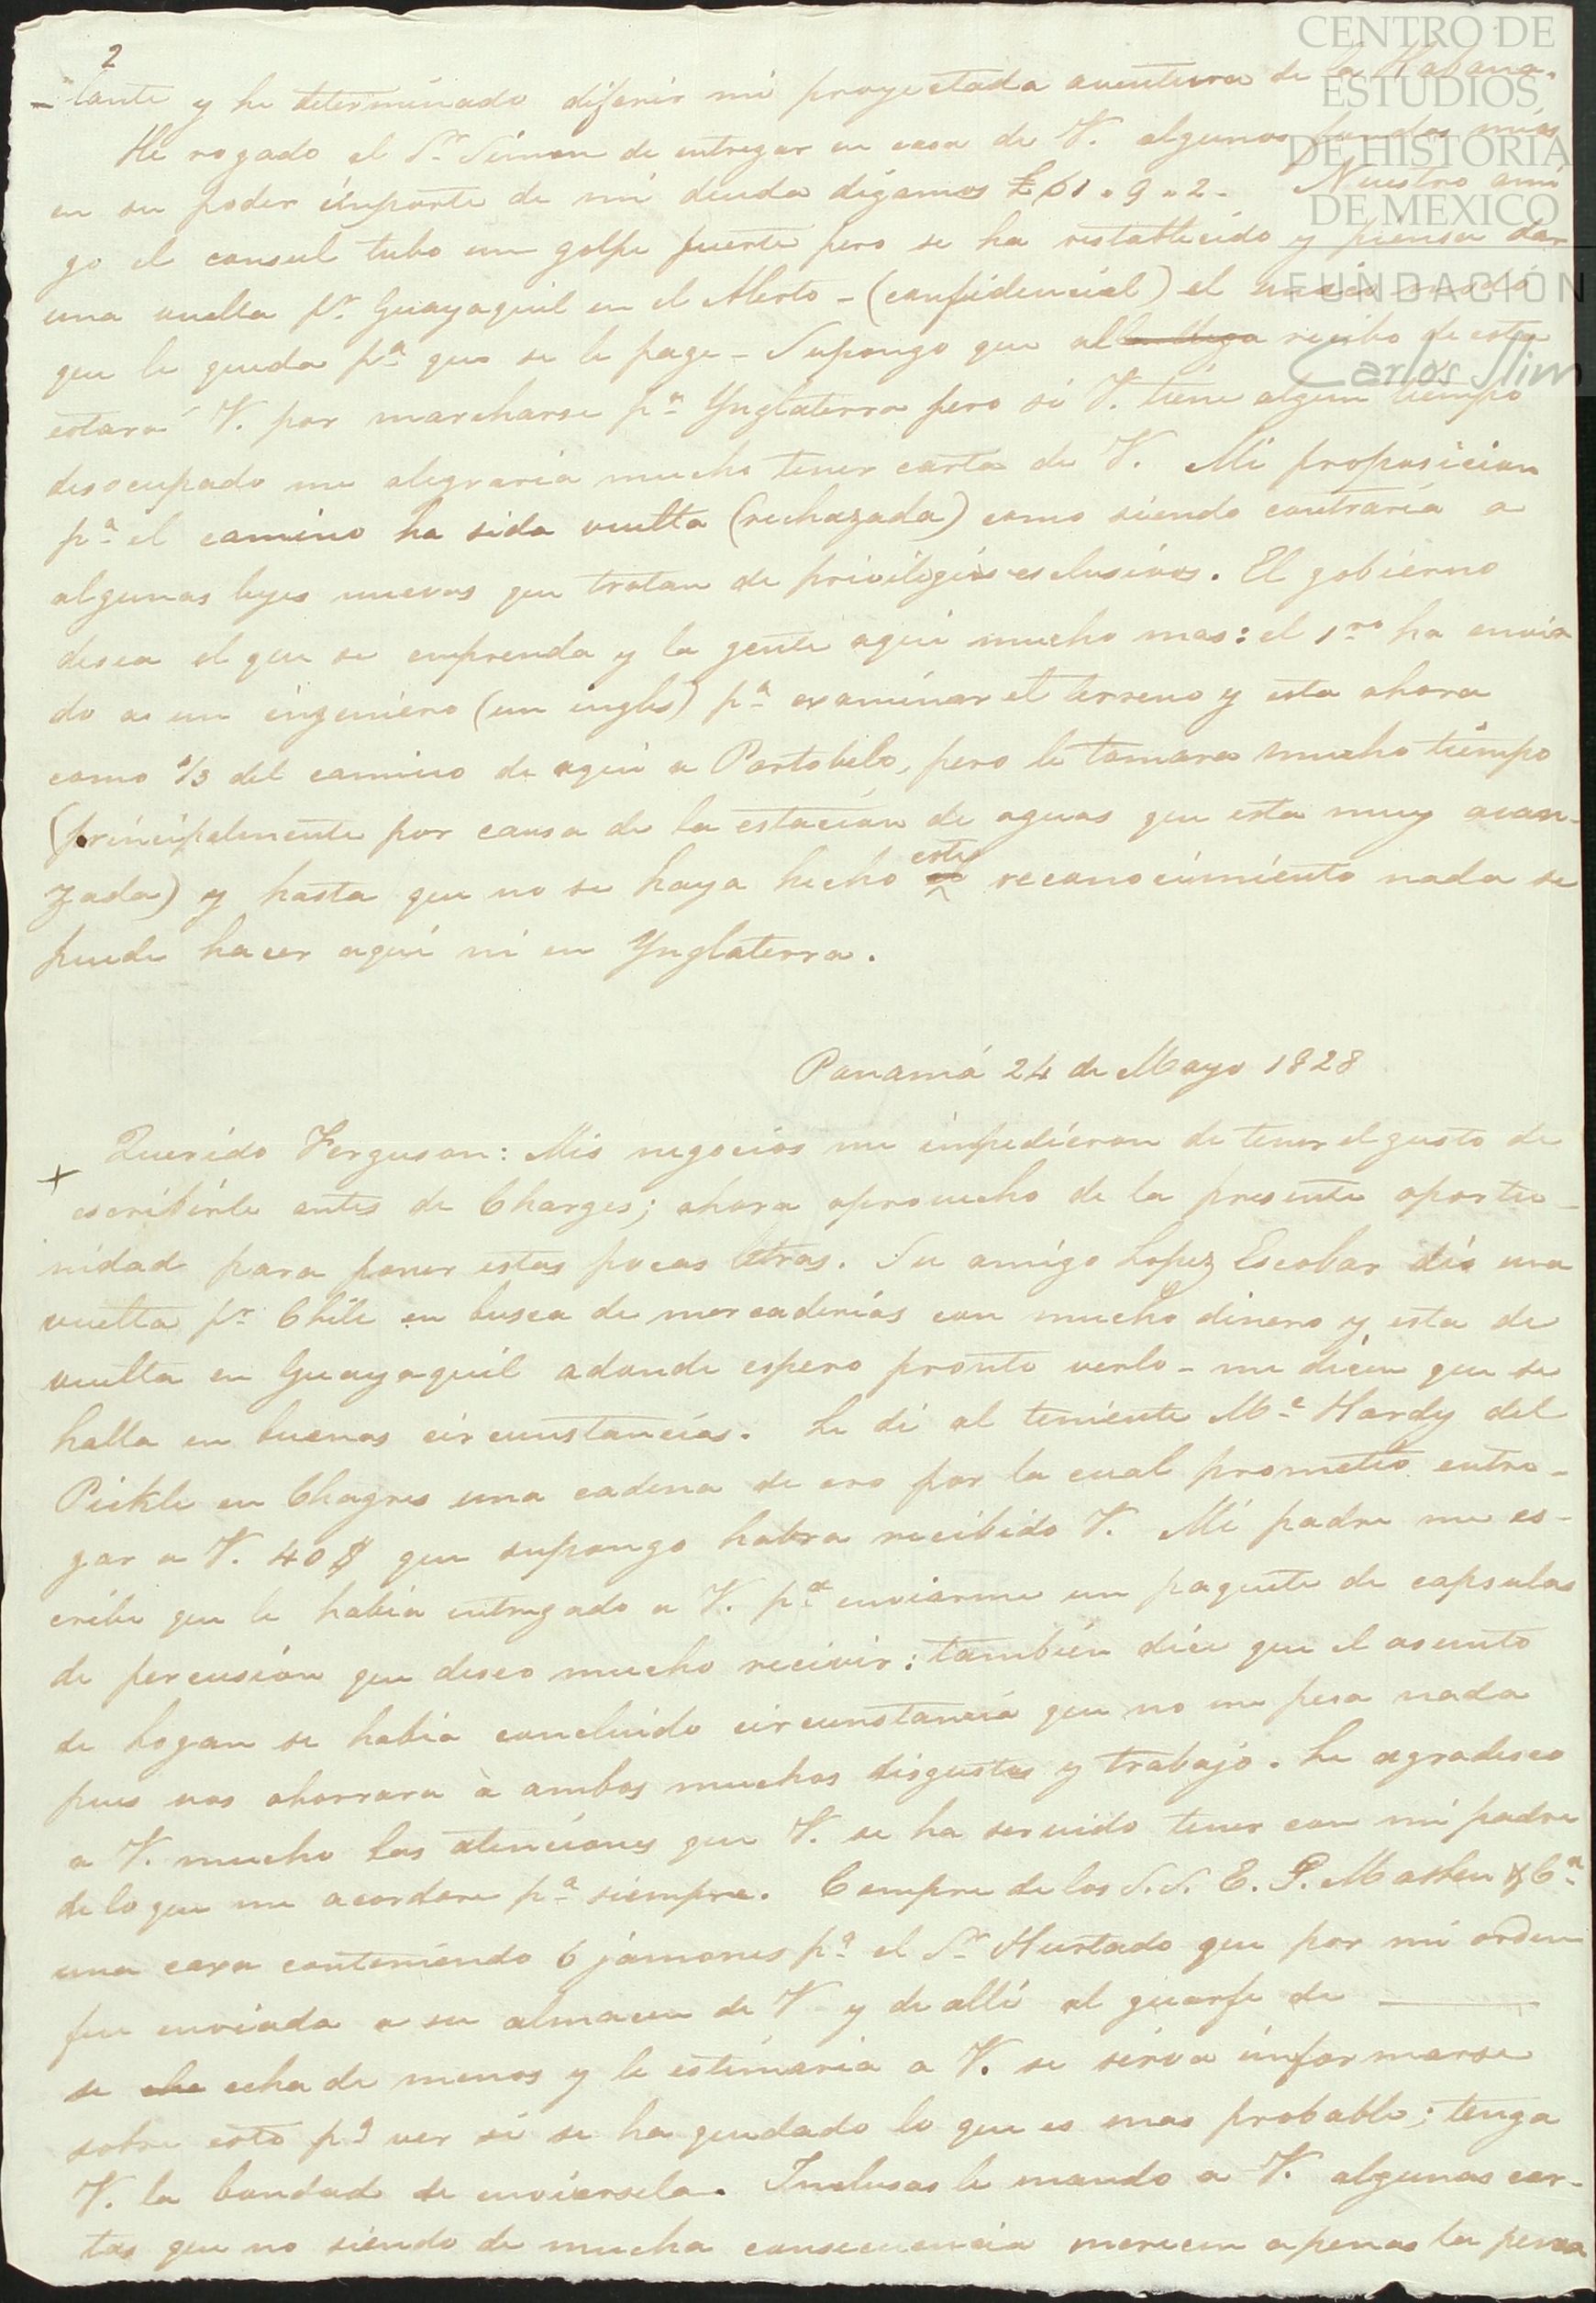 2
-tante y he determinado diferir mi proyectada aventura de la Habana.
He rogado el Sr. Simon de entregar en casa de V. algunos fondos mios
en su poder importe de mi deuda digamos £61.9.2. Nuestro ami
go el consul tubo un golpe fuerte pero se ha restablecido y piensa dar
una vuelta pr. Guayaquil en el Alerto - (confidencial) el unico modo
que le queda pa. que se le page - Supongo que al recibo de esta
estará V. por marcharse pa. Ynglaterra pero si V. tiene algun tiempo
desocupado me alegraria mucho tener carta de V. Mi proposicion
pa. el camino ha sida vuelta (rechazada) como siendo contraria a
algunas leyes nuevas que tratan de privilegios esclusivos. El gobierno
desea el que se emprenda y la gente aqui mucho mas: el 1ro ha envia
do a un ingeniero (un ingles) pa. examinar el terreno y esta ahora
como 1/3 del camino de aqui a Portobelo, pero le tomara mucho tiempo
(principalmente por causa de la estacion de aguas que esta muy avan-
zada) y hasta que no se haya hecho este reconocimiento nada se
puede hacer aqui ni en Ynglaterra.
Panamá 24 de Mayo 1828
Querido Ferguson: Mis negocios me impedieron de tener el gusto de
+ escribirle antes de Charges; ahora aprovecho de la presente oportu-
nidad para poner estas pocas letras. Su amigo Lopez Escobar dió una
vuelta pr. Chile en busca de mercaderias con mucho dinero y esta de
vuelta en Guayaquil adonde espero pronto verlo - me dicen que se
halla en buenas circunstancias. Le di al teniente Mc Hardy del
Pickle en Chagres una cadena de oro por la cual prometió entre-
gar a V. 40$ que supongo habra recibido V. Mi padre me es-
cribe que le habia entregado a V. pa. enviarme un paquete de capsulas
de percusion que deseo mucho recivir: tambien dice que el asunto
de Logan se habia concluido circunstancia que no me pesa nada
pues nos ahorrara à ambos muchos disgustos y trabajo. Le agradesco
a V. mucho las atenciones que V. se ha servido tener con mi padre
de lo que me acordare pa. siempre. Compre de los S.S. E. P. & Ca.
una caxa conteniendo 6 jamones pa. el Sr. Hurtado que por mi orden
fue enviada a su almacen de V. y de alli al guarfe de ———
se echa de menos y le estimaria a V. se sirva informarse
sobre esto pa. ver si se ha quedado lo que es mas probable; tenga
V. la bondad de enviarsela. Inclusas le mando a V. algunas car-
tas que no siendo de mucha consecuencia merecen apenas la pena
CENTRO DE
ESTUDIOS
DE HISTORIA
DE MEXICO
FUNDACIÓN
Carlos Slim